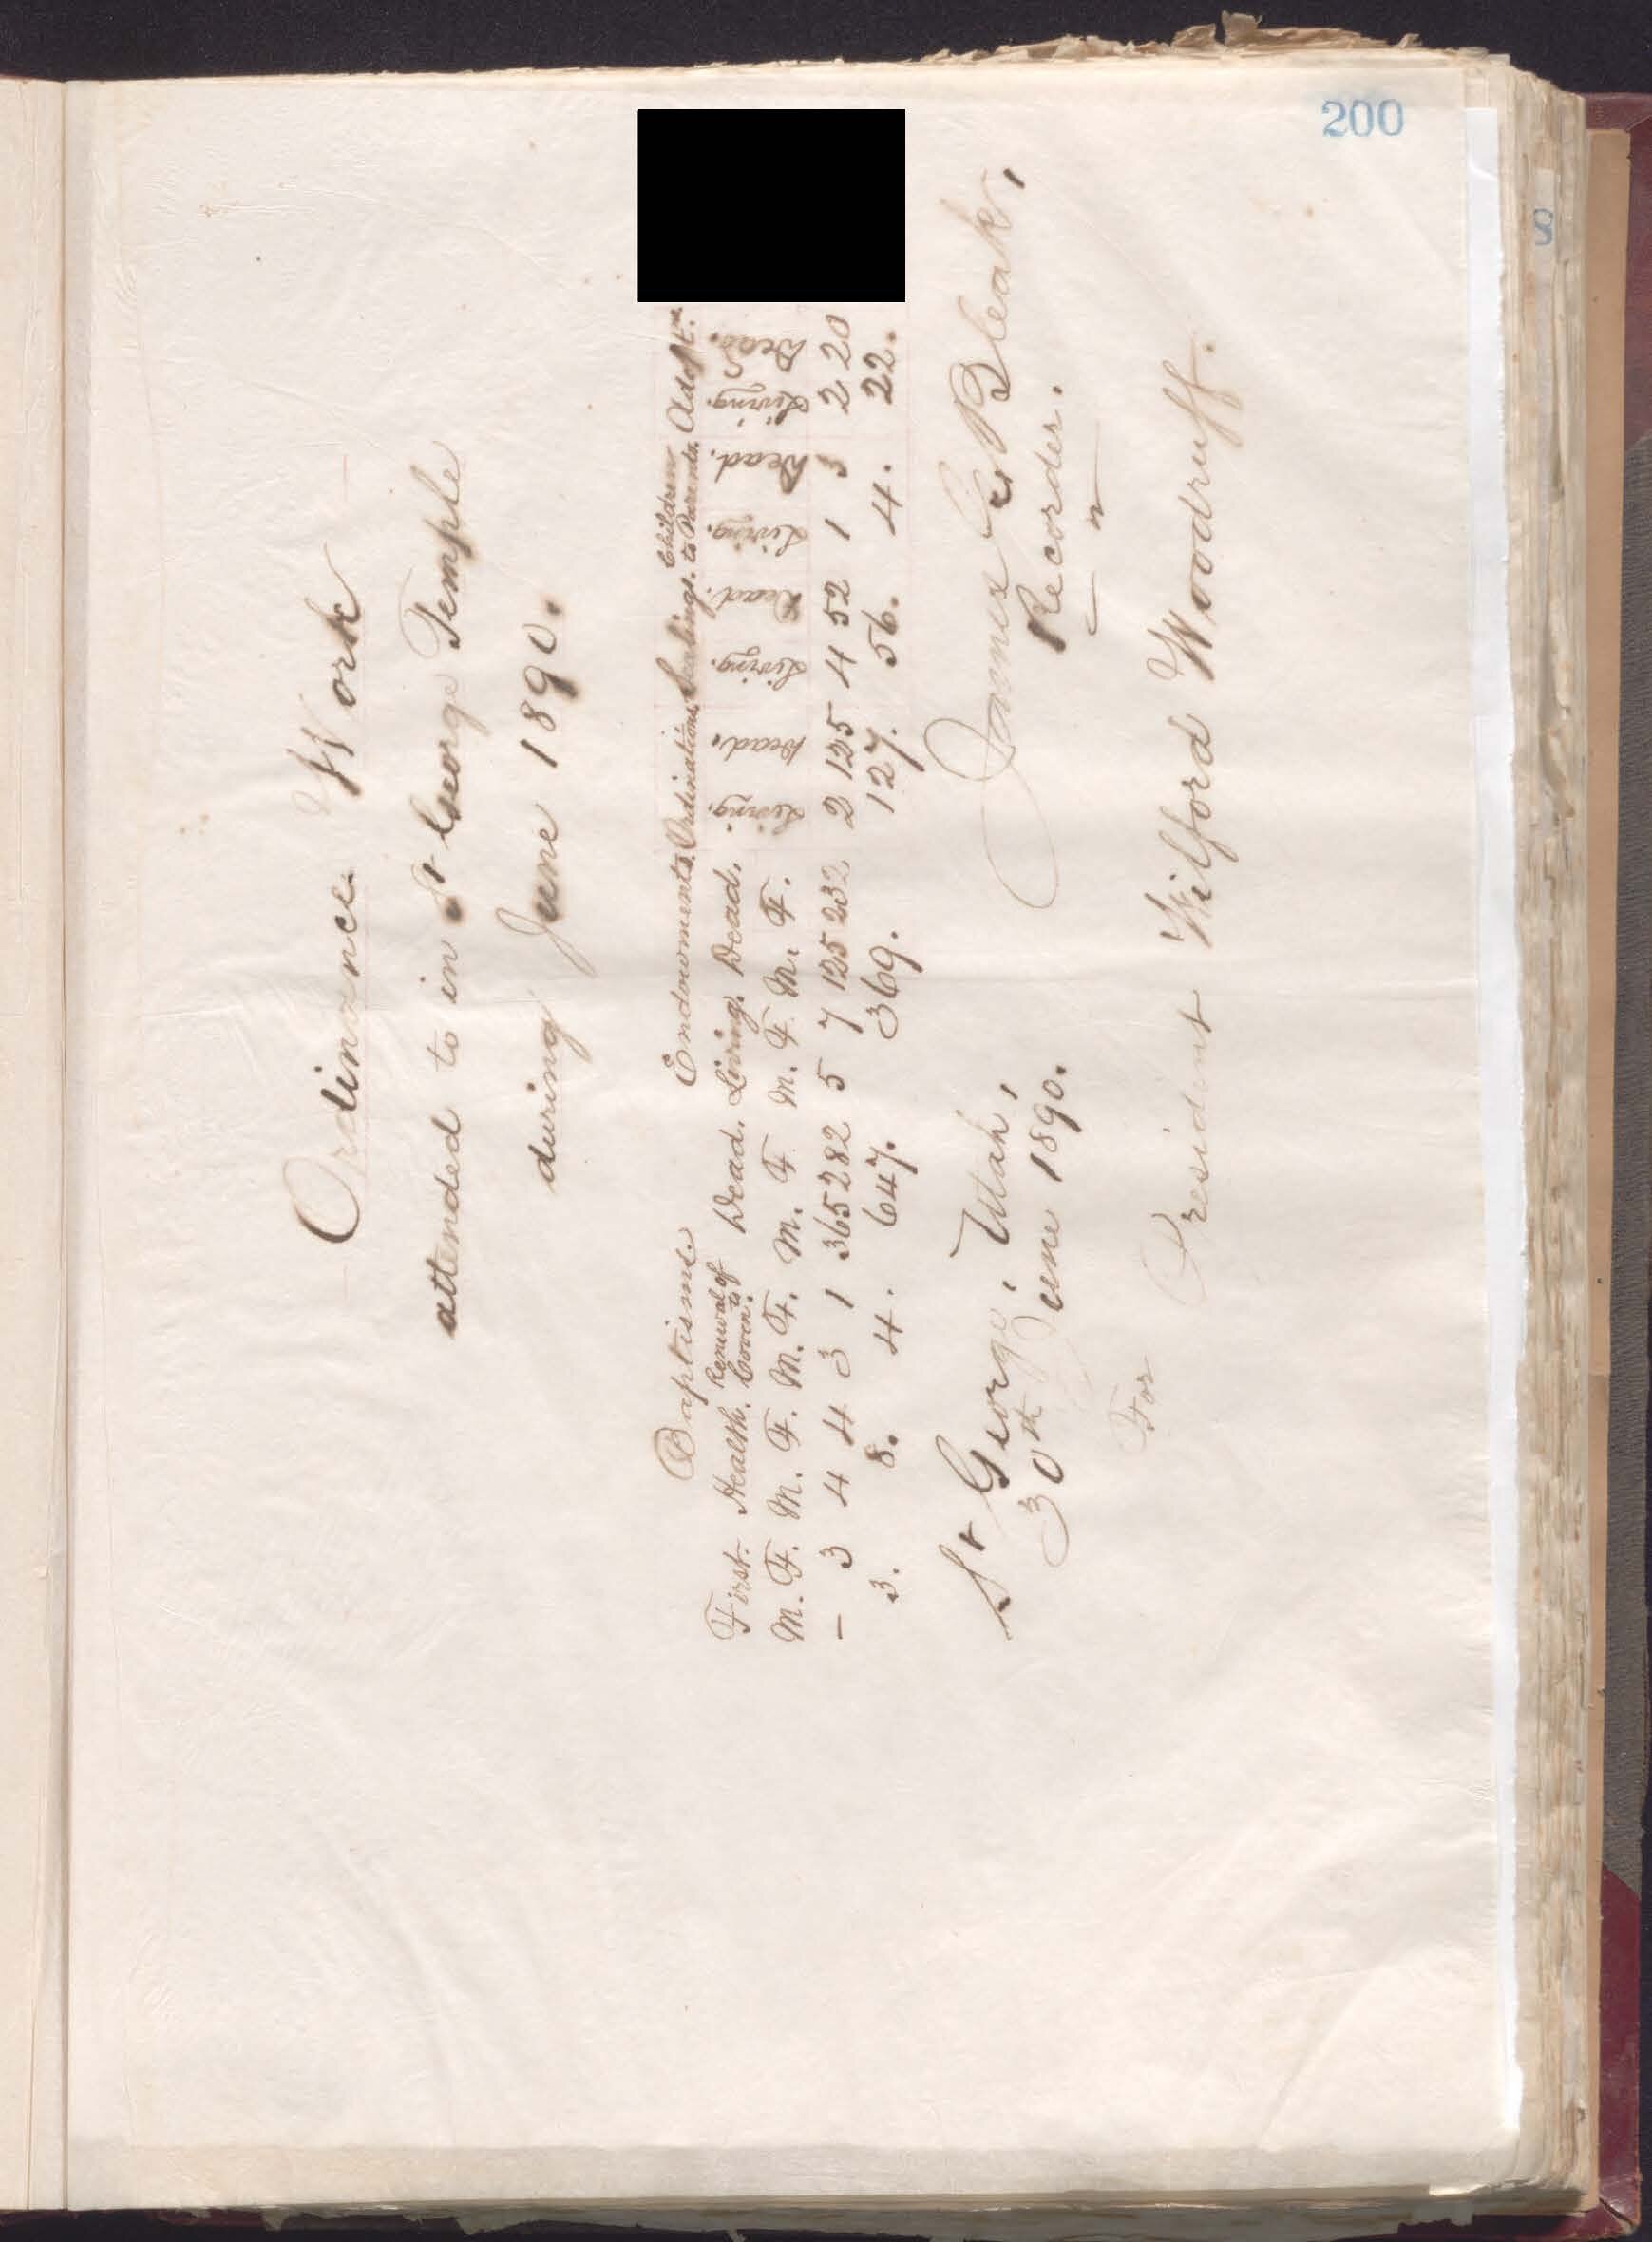 200
Ordinance Work
attended to in St George Temple
during June 1890.
Baptisms Endowments. Ordinations. Sealings. Children to Parents. Adopt.
First. Health. Renewal of Covents. Dead. Living. Dead. Living. Dead. Living. Dead. Living. Dead. Living. Dead.
M. F. M. F. M. F. M. F. M. F. M. F. Living. Dead. Living. Dead. Living. Dead. Living. Dead.
– 3 4 4 3 1 365 282 5 7 125 232 2 125 4 52 1 3 2 20
3. 8. 4. 647. 369. 127. 56. 4. 22.
St George, Utah,
30th June 1890.
James G. Bleak,
Recorder.
For
President Wilford Woodruff.
S